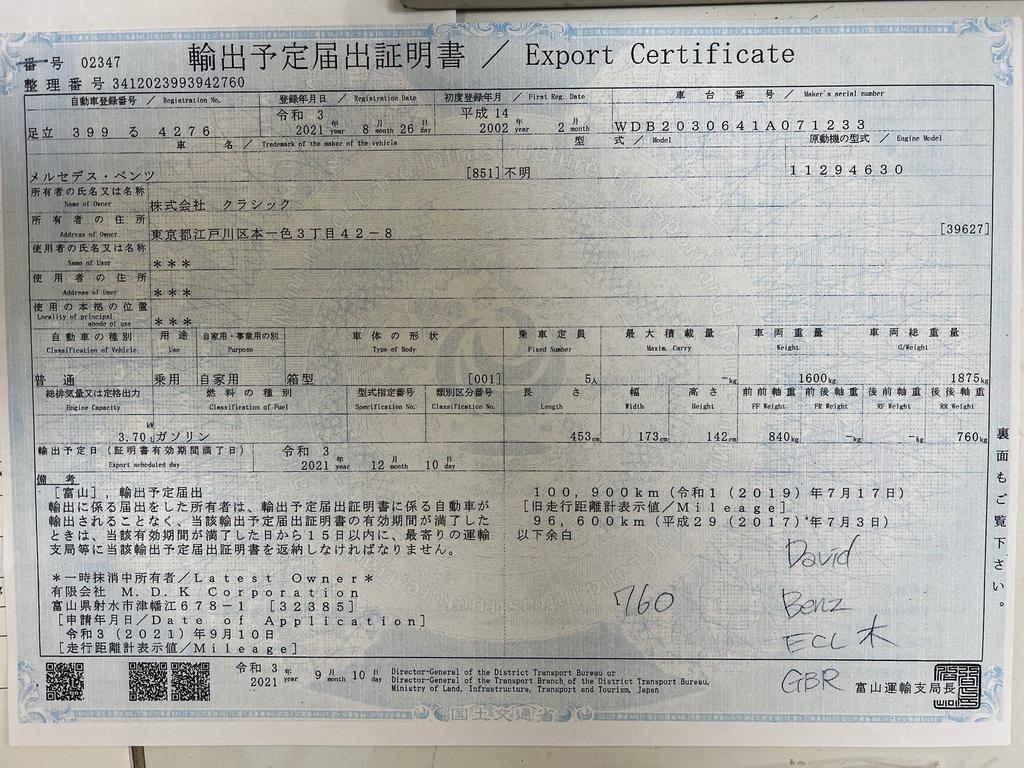 番号 02347
輸出予定届出証明書 / Export Certificate
整理番号 3412023993942760
自動車登録番号 / Registration No. 登録年月日 / Registration Date 初度登録年月 / First Reg. Date 車台番号 / Maker's serial number
足立 399 る 4276 令和 3 2021 年 year 8 月 month 26 日 day 平成 14 2002 年 year 2 月 month WDB2030641A071233
車名 / Trademark of the maker of the vehicle 型式 / Model 原動機の型式 / Engine Model
メルセデス・ベンツ [851] 不明 11294630
所有者の氏名又は名称 Name of Owner 株式会社 クラシック
所有者の住所 Address of Owner 東京都江戸川区本一色3丁目42-8 [39627]
使用者の氏名又は名称 Name of User ***
使用者の住所 Address of User ***
使用の本拠の位置 Locality of principal abode of use ***
自動車の種別 用途 自家用・事業用の別 車体の形状 乗車定員 最大積載量 車両重量 車両総重量
Classification of Vehicle Use Purpose Type of Body Fixed Number Maxim. Carry Weight G/Weight
普通 乗用 自家用 箱型 [001] 5人 -kg 1600kg 1875kg
総排気量又は定格出力 燃料の種別 型式指定番号 類別区分番号 長さ 幅 高さ 前前軸重 前後軸重 後前軸重 後後軸重
Engine Capacity Classification of Fuel Specification No. Classification No. Length Width Height FF Weight FR Weight RF Weight RR Weight
kW
3.70 L ガソリン 453cm 173cm 142cm 840kg -kg -kg 760kg
輸出予定日(証明書有効期間満了日) Export scheduled day 令和 3 2021 年 year 12 月 month 10 日 day
備考
[富山],輸出予定届出
輸出に係る届出をした所有者は、輸出予定届出証明書に係る自動車が
輸出されることなく、当該輸出予定届出証明書の有効期間が満了した
ときは、当該有効期間が満了した日から15日以内に、最寄りの運輸
支局等に当該輸出予定届出証明書を返納しなければなりません。
*一時抹消中所有者/Latest Owner*
有限会社 M.D.K Corporation
富山県射水市津幡江678-1 [32385]
[申請年月日/Date of Application]
令和3(2021)年9月10日
[走行距離計表示値/Mileage]
100,900km(令和1(2019)年7月17日)
[旧走行距離計表示値/Mileage]
96,600km(平成29(2017)年7月3日)
以下余白
760
David
Benz
ECL 木
GBR
裏面もご覧下さい。
令和 3 2021 年 year 9 月 month 10 日 day
Director-General of the District Transport Bureau or
Director-General of the Transport Branch of the District Transport Bureau,
Ministry of Land, Infrastructure, Transport and Tourism, Japan
富山運輸支局長
国土交通省